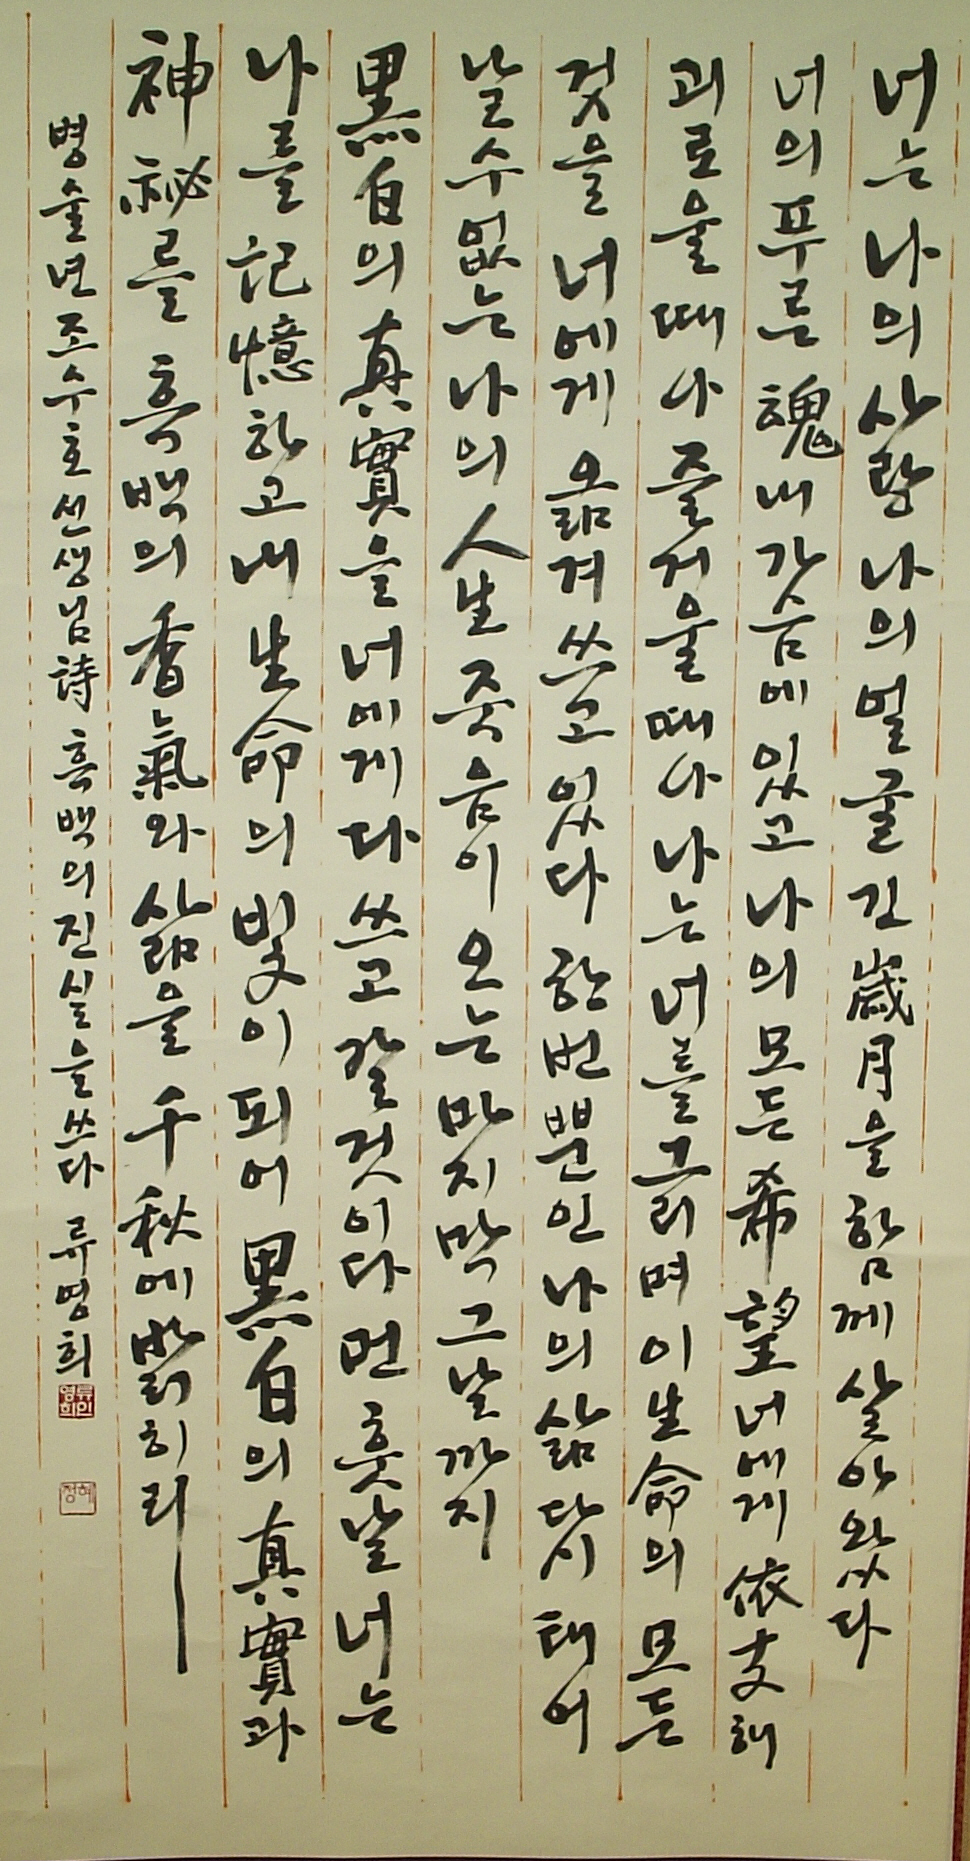 너는 나의 사랑 나의 얼굴 긴 歲月을 함께 살아왔다
너의 푸른 魂 내 가슴에 있고 나의 모든 希望 너에게 依支해
괴로울 때나 즐거울 때나 나는 너를 그리며 이 生命의 모든
것을 너에게 옮겨 쓰고 있다 한번뿐인 나의 삶 다시 태어
날 수 없는 나의 人生 죽음이 오는 마지막 그날까지
黑白의 真實을 너에게 다 쓰고 갈 것이다 먼 훗날 너는
나를 記憶하고 내 生命의 빛이 되어 黑白의 真實과
神秘를 흑백의 香氣와 삶을 千秋에 밝히리
병술년 조수호 선생님 詩 흑백의 진실을 쓰다 류영희